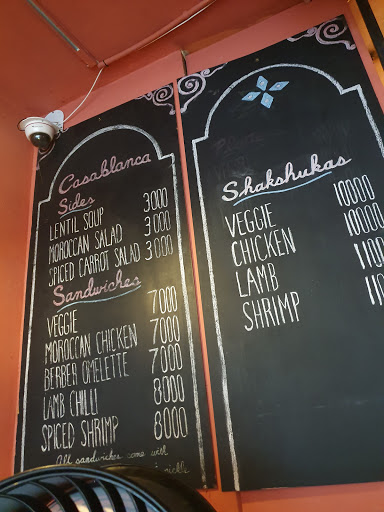 Casablanca
Sides
LENTIL SOUP 3000
MOROCCAN SALAD 3000
SPICED CARROT SALAD 3000
Sandwiches
VEGGIE 7000
MOROCCAN CHICKEN 7000
BERBER OMELETTE 7000
LAMB CHILLI 8000
SPICED SHRIMP 8000
All sandwiches come with
pickle
Shakshukas
VEGGIE 10000
CHICKEN 10000
LAMB
SHRIMP